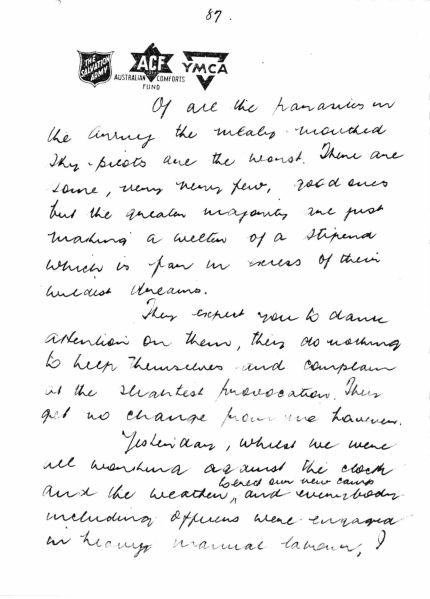 87.
THE SALVATION ARMY
ACF
AUSTRALIAN COMFORTS FUND
YMCA
Of all the parasites in
the Army the mealy-mouthed
sky-pilots are the worst. There are
some, very very few, good ones
but the greater majority are just
making a welter of a stipend
which is far in excess of their
wildest dreams.
They expect you to dance
attention on them, they do nothing
to help themselves and complain
at the slightest provocation. They
get no change from me however.
Yesterday, whilst we were
all working against the clock
and the weather to erect our new camp and everybody
including officers were engaged
in heavy manual labour, I